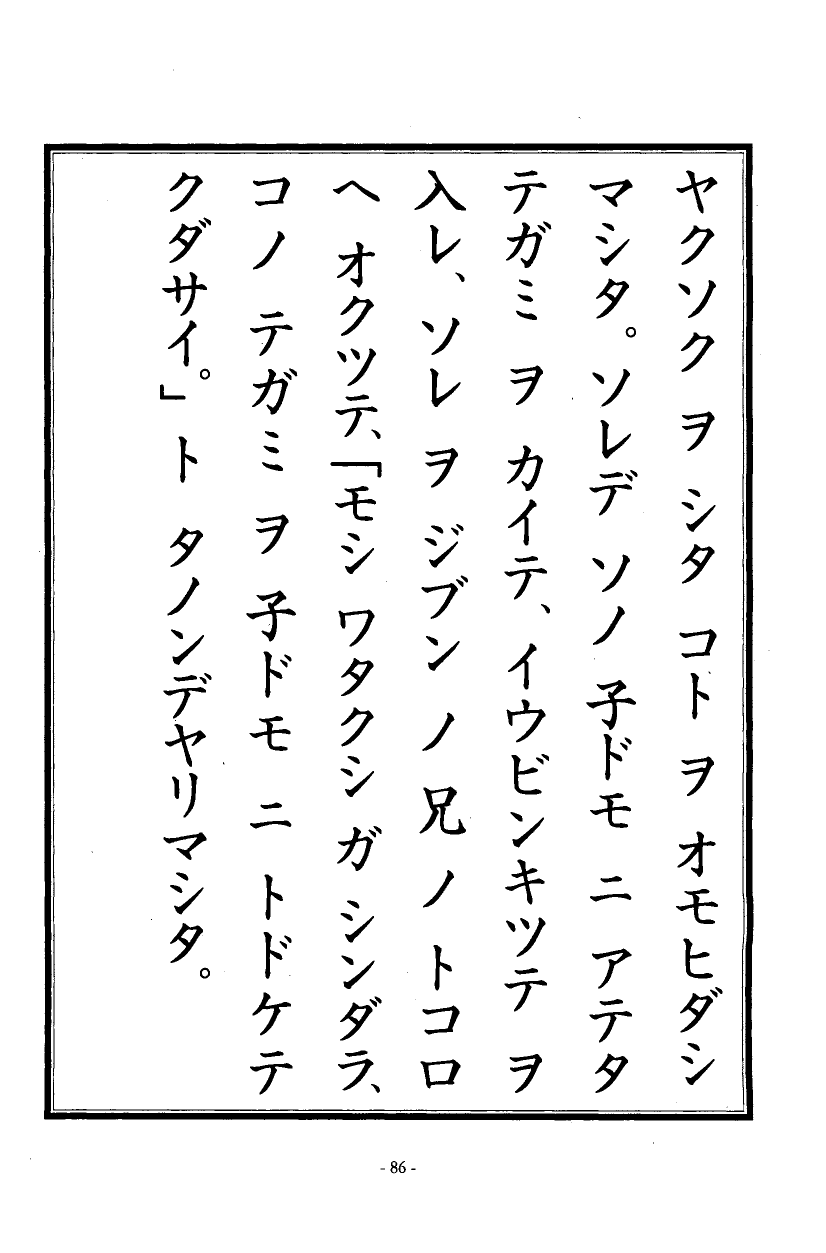 ヤクソク ヲ シタ コト ヲ オモヒダシ
マシタ。ソレデ ソノ 子ドモ ニ アテタ
テガミ ヲ カイテ、イウビンキツテ ヲ
入レ、ソレ ヲ ジブン ノ 兄 ノ トコロ
ヘ オクツテ、「モシ ワタクシ ガ シンダラ、
コノ テガミ ヲ 子ドモ ニ トドケテ
クダサイ。」ト タノンデヤリマシタ。
- 86 -